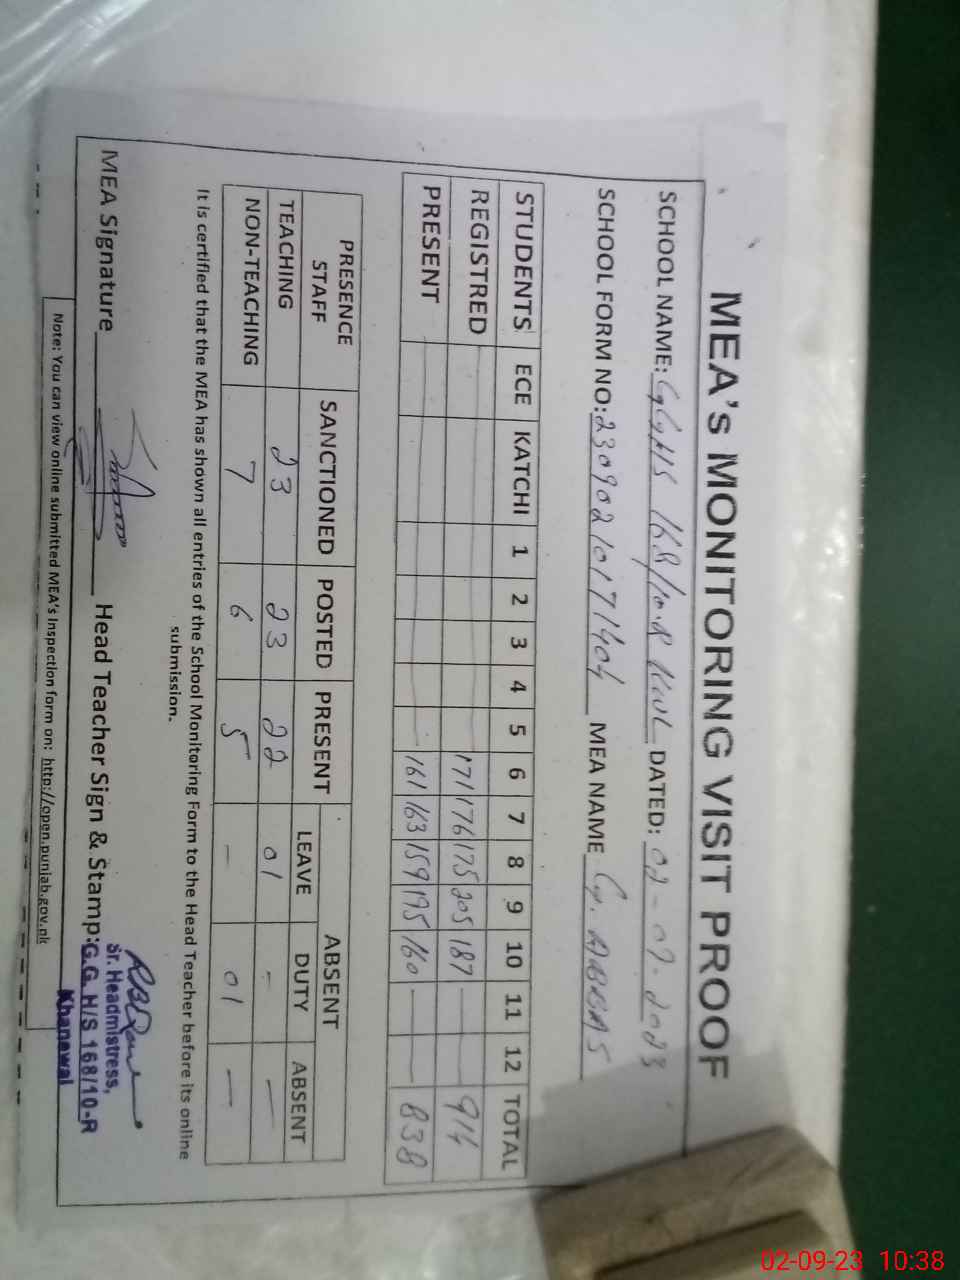 MEA's MONITORING VISIT PROOF
SCHOOL NAME: GGHS 168/10-R KWL DATED: 02-09-2023
SCHOOL FORM NO: 23090210171404 MEA NAME G. ABBAS
STUDENTS ECE KATCHI 1 2 3 4 5 6 7 8 9 10 11 12 TOTAL
REGISTRED 171 176 175 205 187 — — 914
PRESENT 161 163 159 195 160 — — 838
PRESENCE STAFF SANCTIONED POSTED PRESENT ABSENT
LEAVE DUTY ABSENT
TEACHING 23 23 22 01 - —
NON-TEACHING 7 6 5 — 01 —
It is certified that the MEA has shown all entries of the School Monitoring Form to the Head Teacher before its online
submission.
MEA Signature Head Teacher Sign & Stamp:
Sr. Headmistress,
G.G. H/S 168/10-R
Khanewal
Note: You can view online submitted MEA's Inspection form on: http://open.punjab.gov.pk
02-09-23 10:38